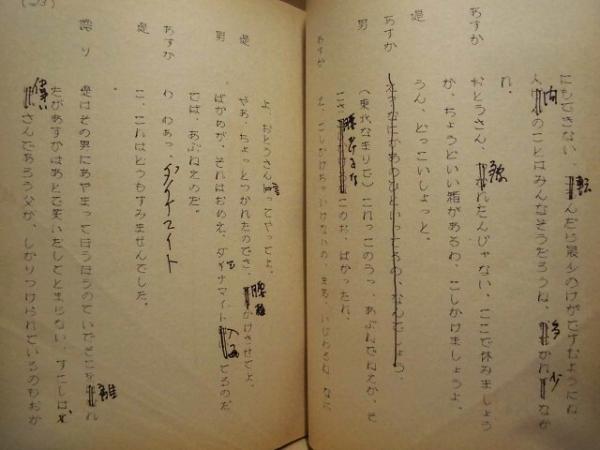 にもできない。転んだら最少のけがですむようにね
人向のことはみんなそうだろうね。
れ。
あすか おとうさん、疲れたんじゃない、ここで休みましょう
か、ちょうどいい箱があるわ、こしかけましょうよ。
是 うん、どっこいしょっと。
あすか
男 (東北なまりで)これっこのうっ、あぶねでねえか、そ
こさ腰かけるな このお、ばかったれ、
あすか え、こしかけちゃいけないの、まあ、いじわるね、なら
よ、おとうさん ってやってよ。
是 やあ、ちょっとつかれたのでさ、腰掛かけさせてよ。
男 ばかめが、それはおめえ、ダイナマイト入ってるのだ
では、あぶねえのだ。
あすか わ、わあっ、ダイナマイト
是 こ、これはどうもすみませんでした。
語り 是はその男にあやまって日うほうのていでそこを離れ
たがあすかはあとで笑いだしてとまらない。すこしはそ
偉いさんであろう父が、しかりつけられているのもおか
(23)